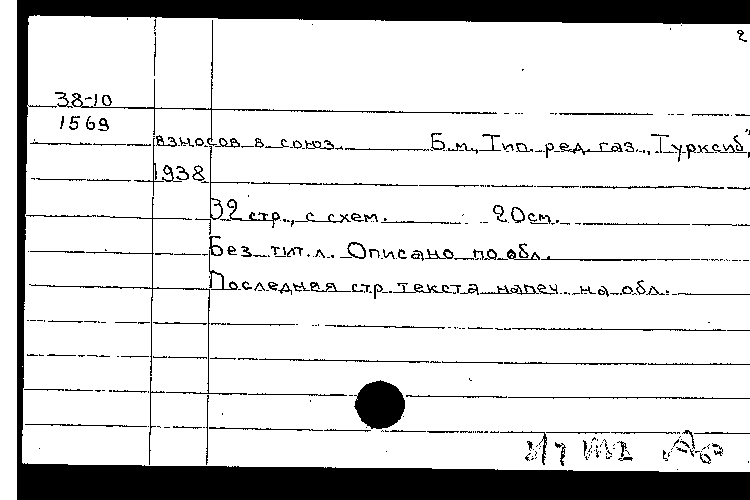 2
38-10
1569
взносов в союз. Б.м., Тип. ред. газ. „Турксиб",
1938
32 стр., с схем. 20 см.
Без тит. л. Описано по обл.
Последняя стр. текста напеч. на обл.